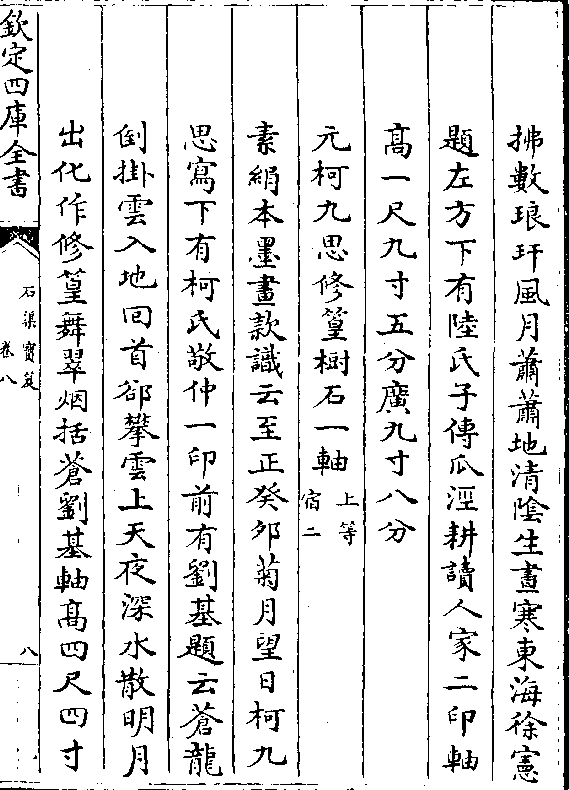 拂數琅玕風月蕭蕭地清陰生晝寒東海徐憲
題左方下有陸氏子傳瓜涇耕讀人家二印軸
高一尺九寸五分廣九寸八分
元柯九思修篁樹石一軸 上等 宿二
素絹本墨畫款識云至正癸卯菊月望日柯九
思寫下有柯氏敬仲一印前有劉基題云蒼龍
倒掛雲入地回首郤攀雲上天夜深水散明月
出化作修篁舞翠烟括蒼劉基軸高四尺四寸
欽定四庫全書
石渠寶笈
卷八
八